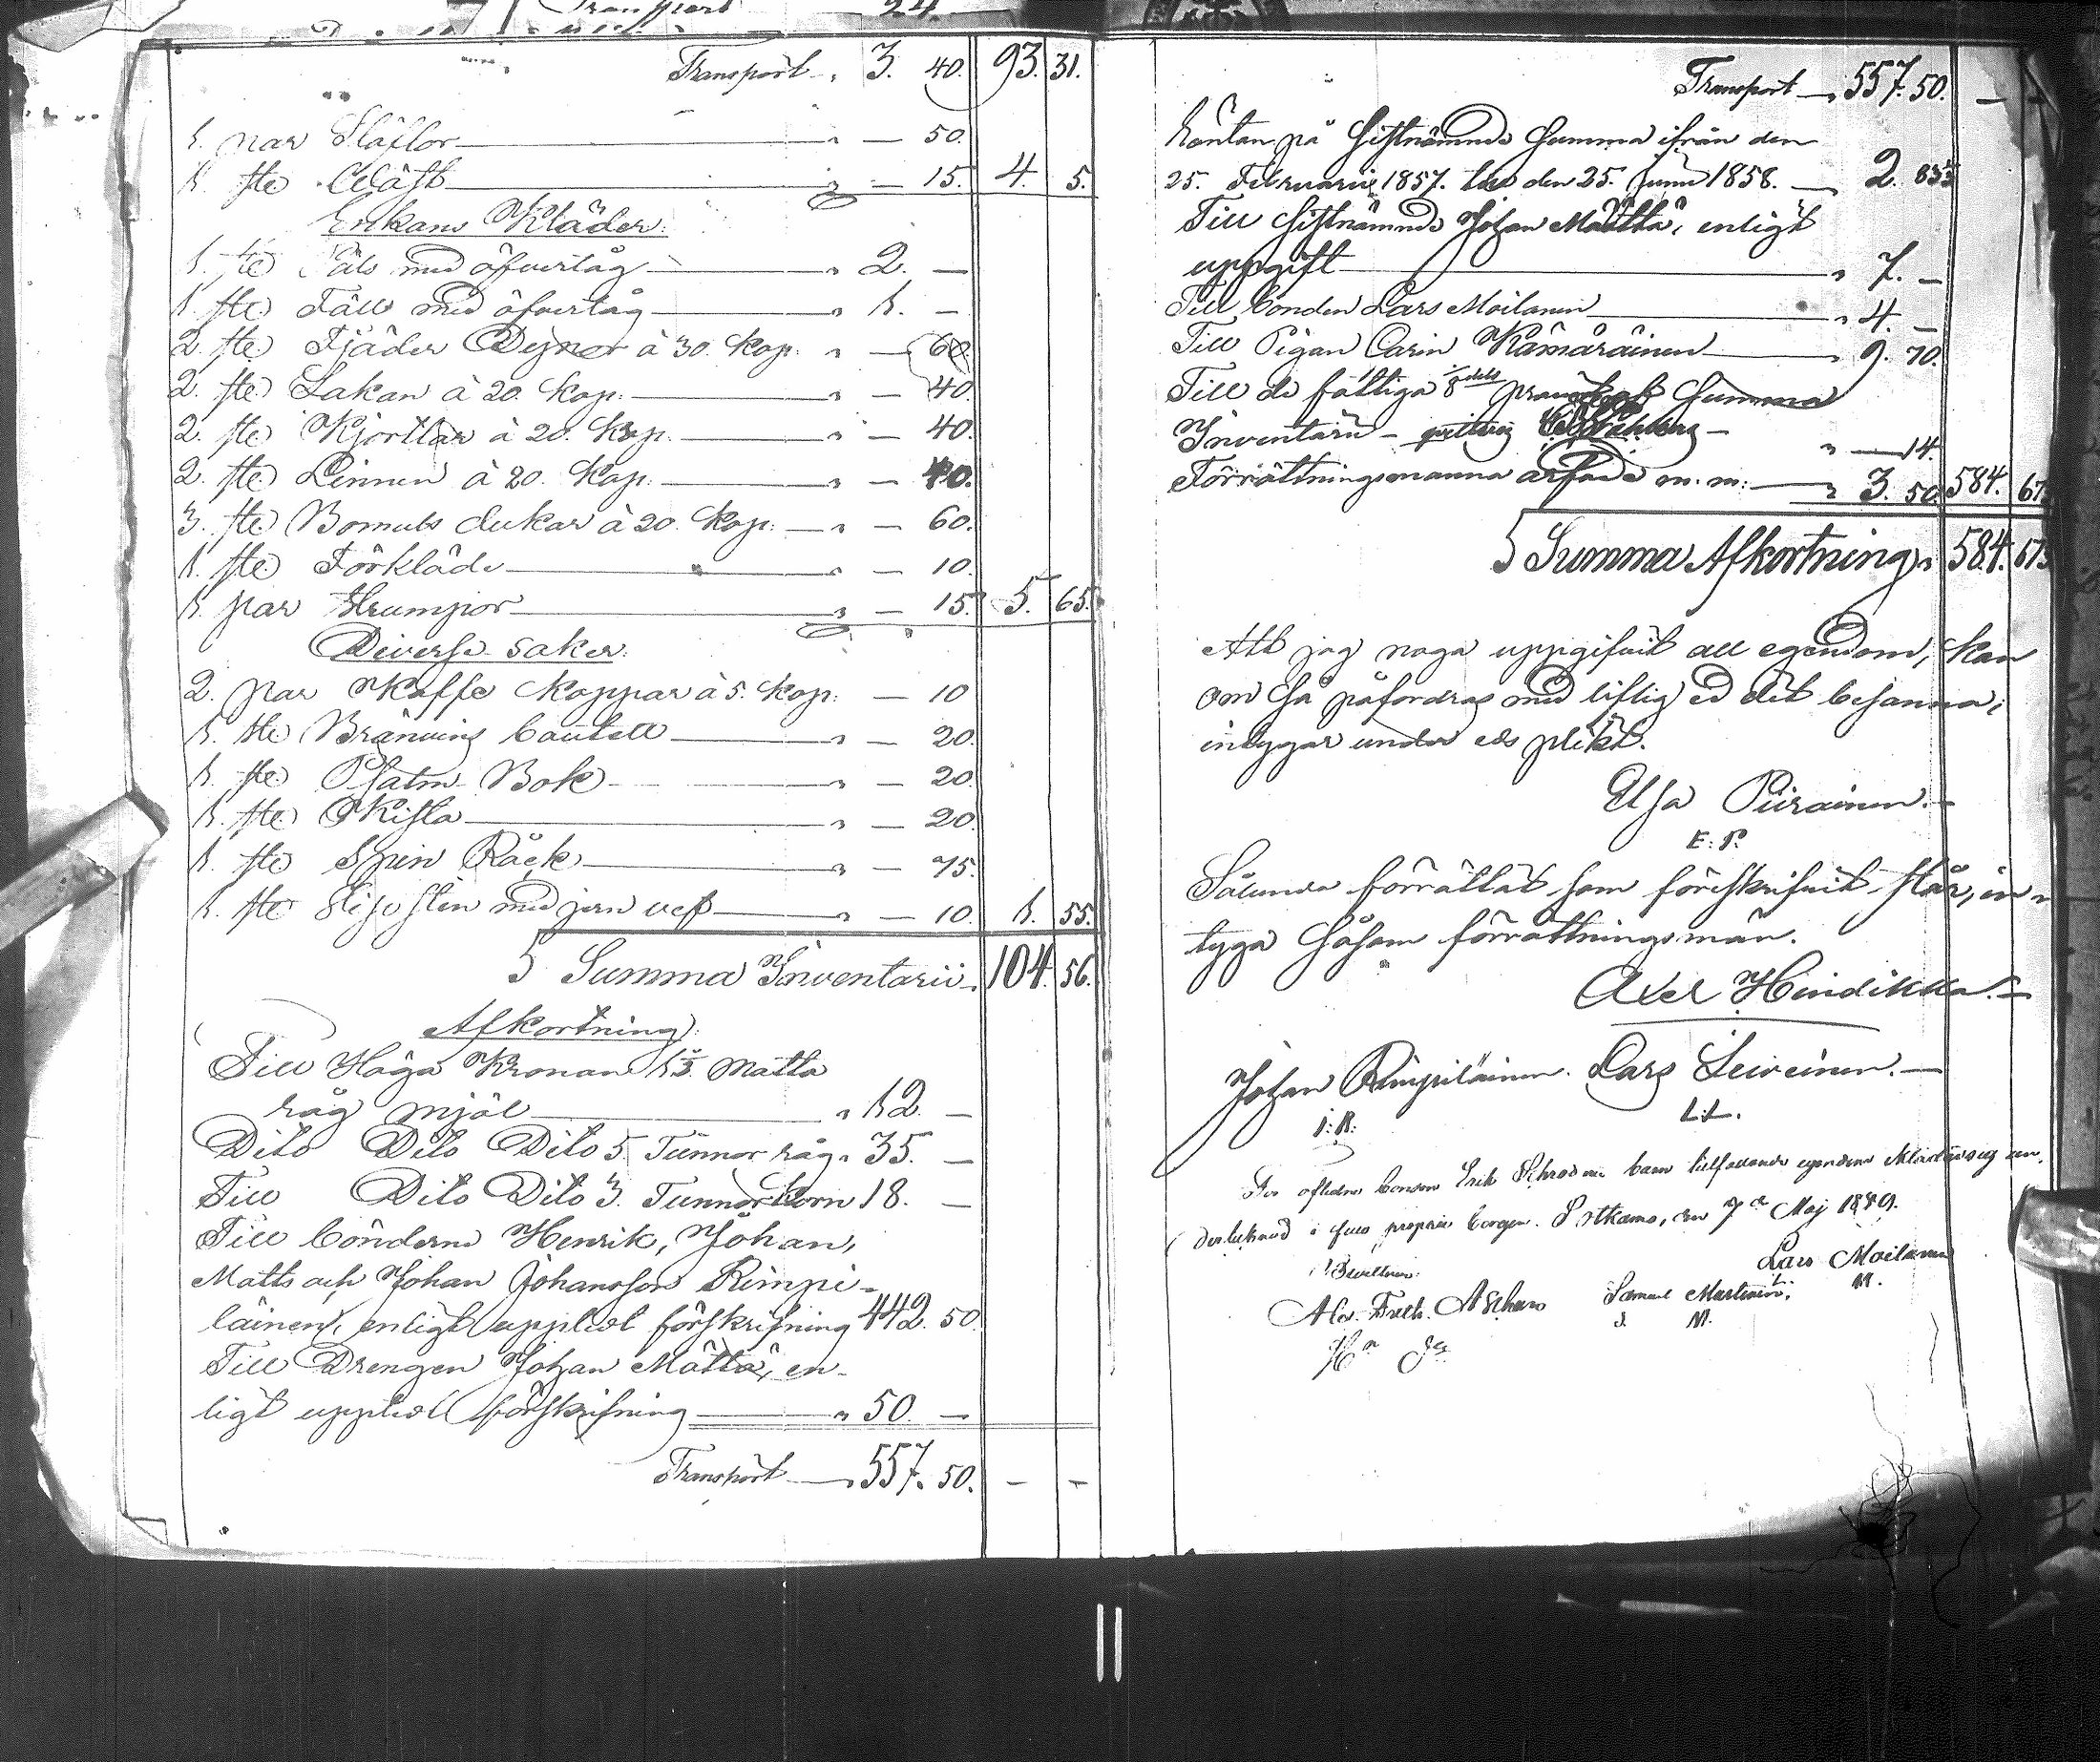 Transport „ 3. 40. 93. 31.
1. par Stöflor „ — 50.
1. st: Wäst „ — 15. 4. 5.
Enkans Kläder:
1. st: Päls med öfvertåg „ 2. —
1. st: Fäll med öfvertåg „ 1. —
2. st: Fjäder Dynor à 30. Kop: „ — 60.
2. st: Lakan à 20. Kop: „ — 40.
2. st: Kjortlar à 20. Kop. „ — 40.
2. st: Linnen à 20. Kop: „ — 40.
3. st: Bomuls dukar à 20. Kop: „ — 60.
1. st: Förkläde „ — 10.
1. par Strumpor „ — 15. 5. 65.
Diverse saker:
2. par Kaffe Koppar à 5. Kop: — 10
1. st: Bränvins boutell „ — 20.
1. st: Psalm Bok „ — 20
1. st: Kista „ — 20.
1. st: Spin Råck „ — 75.
1. st: Slipsten med jern vef „ — 10. 1. 55.
Summa Inventarii. 104. 56.
Afkortning:
Till Höga Kronan 1 3. Matta
råg mjöl „ 12. —
Dito Dito Dito 5. Tunnor råg „ 35. —
Till Dito Dito 3. Tunnor Korn 18. —
Till bönderne Henrik, Johan,
Matts och Johan Johansson Rimpi-
läinen, enligt upplist förskrifning 442. 50.
Till Drengen Johan Mättä, en-
ligt upplist förskrifning „ 50. —
Transport „ 557. 50. — —
Transport „ 557. 50. —
Räntan på Sistnämnde Summa ifrån den
25. Februarii 1857. till den 25. Junii 1858. — 2. 83
Till Sistnämnde Johan Mättä, enligt
uppgift „ 7. —
Till bonden Lars Moilanen „ 4. —
Till Pigan Carin Kämäräinen „ 9. 70.
Till de fattiga 1/8 dels Summa
Inventarii — „ — 14.
Förrättningsmanna arfvode m. m: „ 3. 50. 584. 67
Summa Afkortning „ 584. 67
Att jag noga uppgifvit all egendom, kan
om så påfordras med liflig ed det besanna,
intygar under eds plikt.
Elsa Piirainen. —
E: P.
Sålunda förrättat som föreskrifvit står, in-
tyga såsom förrättningsmän.
Axel Heindikka. —
Johan Rimpiläinen. Lars Leiveinen. —
J: R: L: L.
För aflidne bonden Erik barn tillfallande egendom iklär jag un-
dertecknad i full proprie borgen. Sotkamo, den 7de Maj
Lars Moilanen
Bevittna: M.
Alex. Fredr. Samuel Martinen.
S. M.